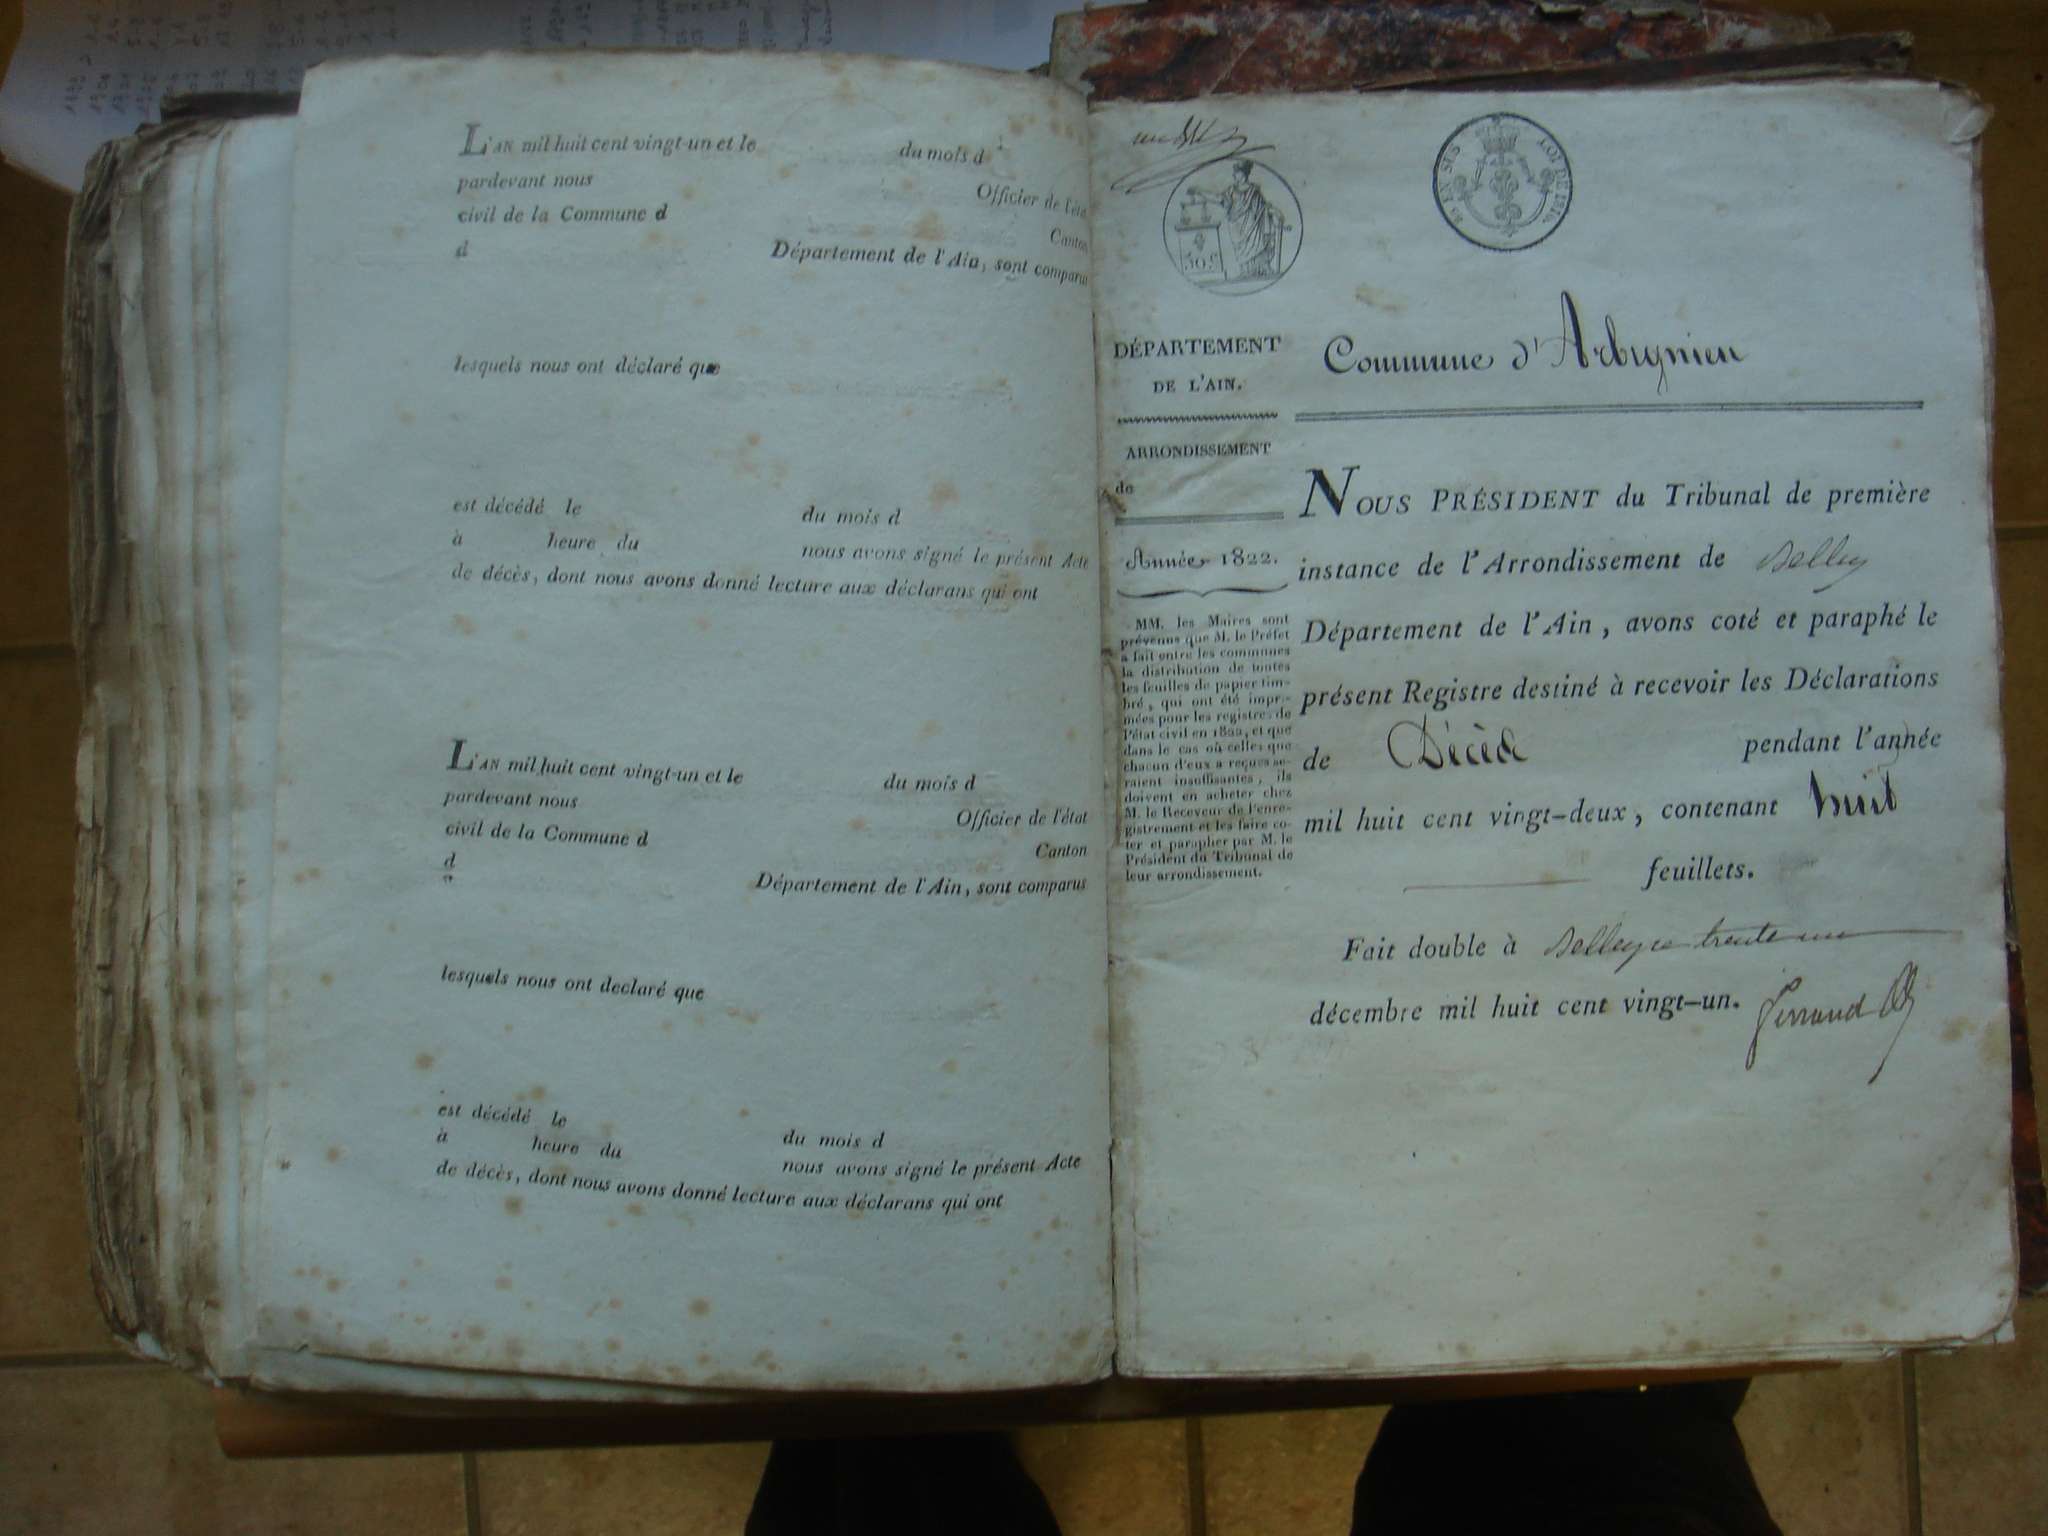 L'AN mil huit cent vingt-un et le du mois d
pardevant nous Officier de l'éta
civil de la Commune d Canton
d Département de l'Ain, sont comparus
lesquels nous ont déclaré que
est décédé le du mois d
à heure du nous avons signé le présent Acte
de décès, dont nous avons donné lecture aux déclarans qui ont
L'AN mil huit cent vingt-un et le du mois d
pardevant nous Officier de l'état
civil de la Commune d Canton
d Département de l'Ain, sont comparus
lesquels nous ont declaré que
est décédé le du mois d
à heure du nous avons signé le présent Acte
de décès, dont nous avons donné lecture aux déclarans qui ont
50 EN SUS LOI DE 1816.
50 c
DÉPARTEMENT
DE L'AIN.
Commune d'Arbignieu
ARRONDISSEMENT
de
Année 1822.
MM. les Maires sont
prévenus que M. le Préfet
a fait entre les communes
la distribution de toutes
les feuilles de papier tim-
bré, qui ont été impri-
mées pour les registres de
l'état civil en 1822, et que
dans le cas où celles que
chacun d'eux a reçues se-
raient insuffisantes, ils
doivent en acheter chez
M. le Receveur de l'enre-
gistrement et les faire co-
ter et parapher par M. le
Président du Tribunal de
leur arrondissement.
NOUS PRÉSIDENT du Tribunal de première
instance de l'Arrondissement de Belley
Département de l'Ain, avons coté et paraphé le
présent Registre destiné à recevoir les Déclarations
de Décès pendant l'année
mil huit cent vingt-deux, contenant huit
feuillets.
Fait double à Belley ce trente un
décembre mil huit cent vingt-un.